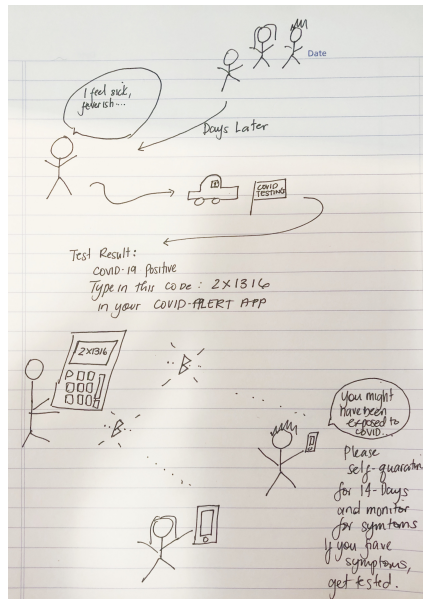 Date
I feel sick,
feverish....
Days Later
COVID
TESTING
Test Result:
COVID-19 Positive
Type in this code: 2X1316
in your COVID-ALERT APP
2X1316
You might
have been
exposed to
COVID...
Please
self-quarantin
for 14-Days
and monitor
for symtoms
If you have
symptoms,
get tested.